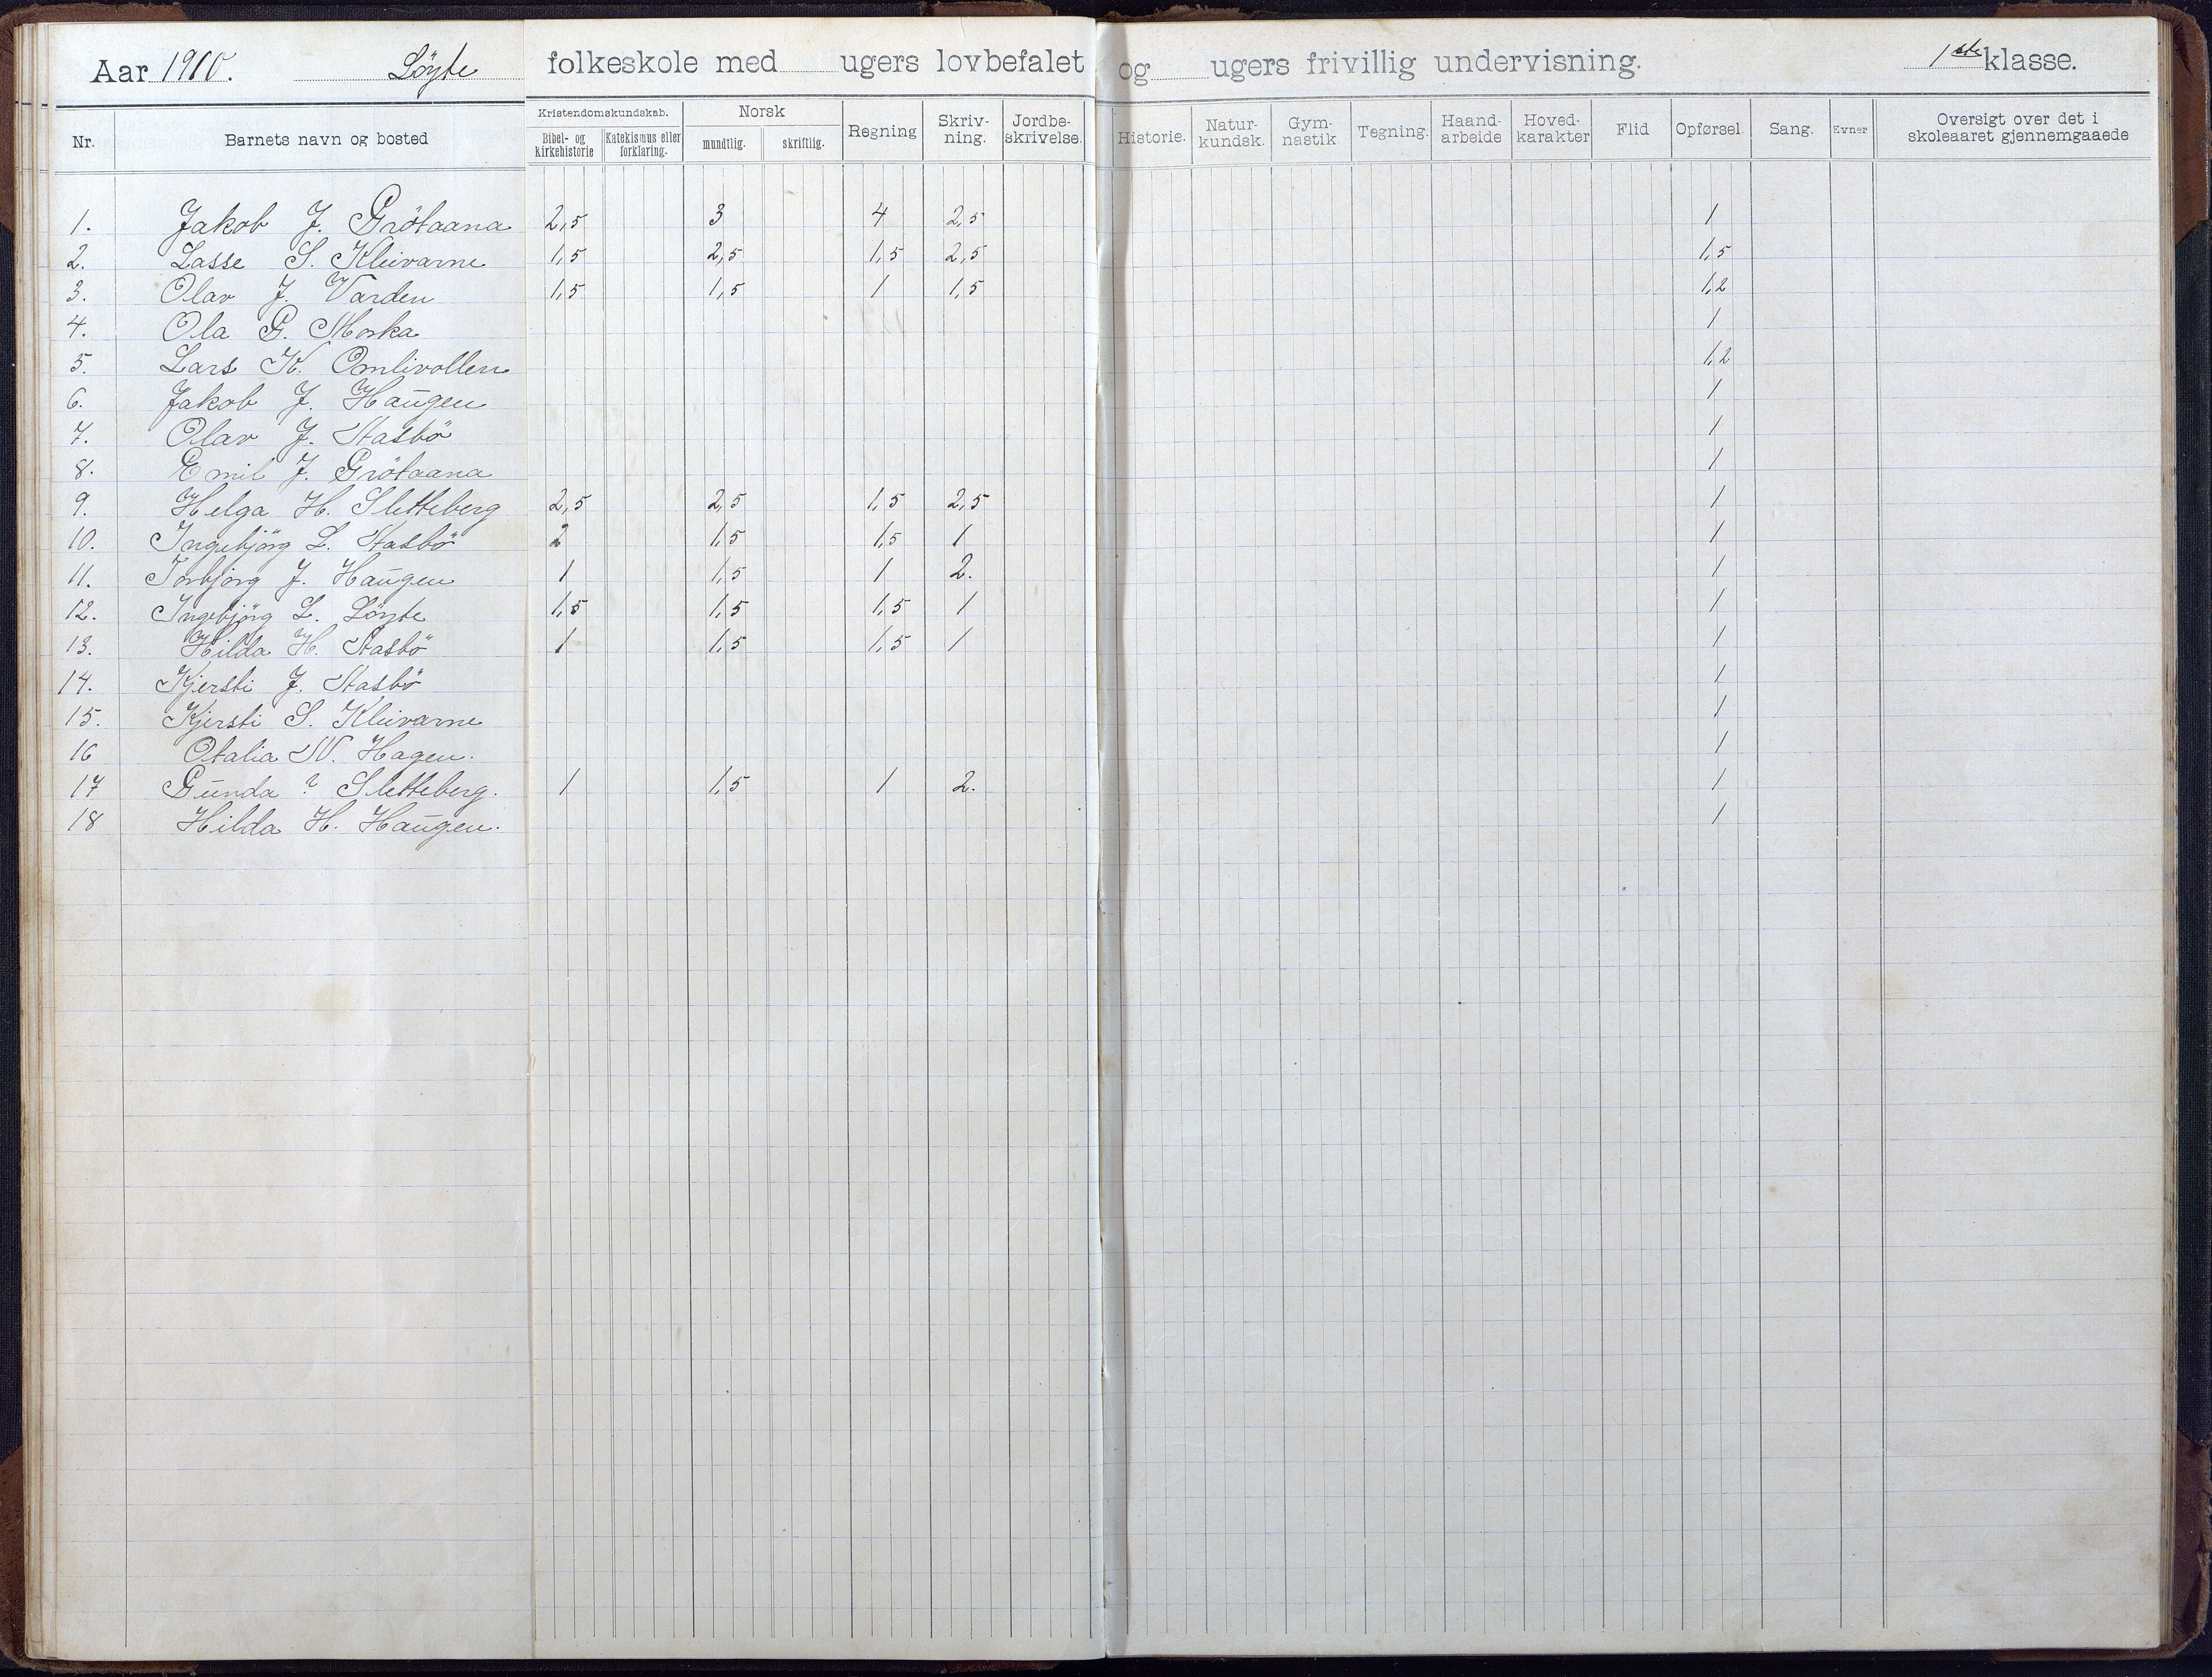 Aar 1910. Löyte folkeskole med ugers lovbefalet og ugers frivillig undervisning. 1ste klasse.
Nr. Barnets navn og bosted Kristendomskundskab. Bibel- og Kirkehistorie Katekismus eller forklaring. Norsk mundtlig. skriftlig. Regning Skriv-ning. Jordbe-skrivelse. Historie. Natur-kundsk. Gym-nastik Tegning. Haand-arbeide Hoved-karakter Flid Opførsel. Sang. Evner Oversigt over det i skoleaaret gjennemgaaede
1. Jakob J. Grötaana 2,5 3 4 2,5 1
2. Lasse S. Kleivarne 1,5 2,5 1,5 2,5 1,5
3. Olav J. Varden 1,5 1,5 1 1,5 1,2
4. Ola G. Moska 1
5. Lars K. Omlivollen 1,2
6. Jakob J. Haugen 1
7. Olav J. Stasbö 1
8. Emil J. Grötaana 1
9. Helga H. Sletteberg 2,5 2,5 1,5 2,5 1
10. Ingebjörg L. Stasbö 2 1,5 1,5 1 1
11. Torbjörg J. Haugen 1 1,5 1 2. 1
12. Ingebjörg L. Löyte 1,5 1,5 1,5 1 1
13. Hilda H. Stasbö 1 1,5 1,5 1 1
14. Kjersti J. Stasbö 1
15. Kjersti S. Kleivarne 1
16 Otalia N. Hagen. 1
17 Gunda ? Sletteberg. 1 1,5 1 2. 1
18 Hilda H. Haugen. 1